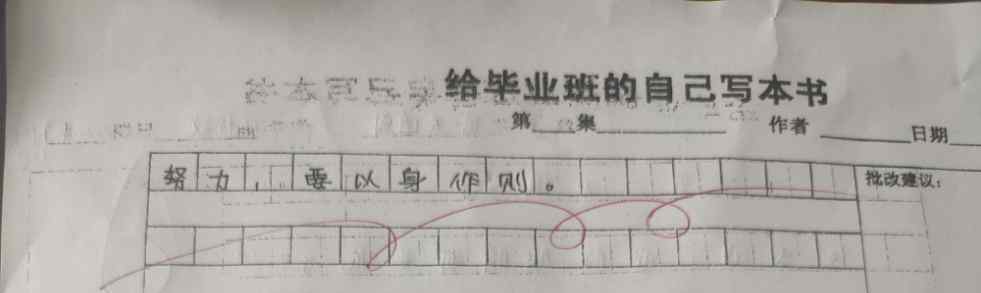 给毕业班的自己写本书
第____集____________ 作者 ________日期____
努力，要以身作则。
批改建议：